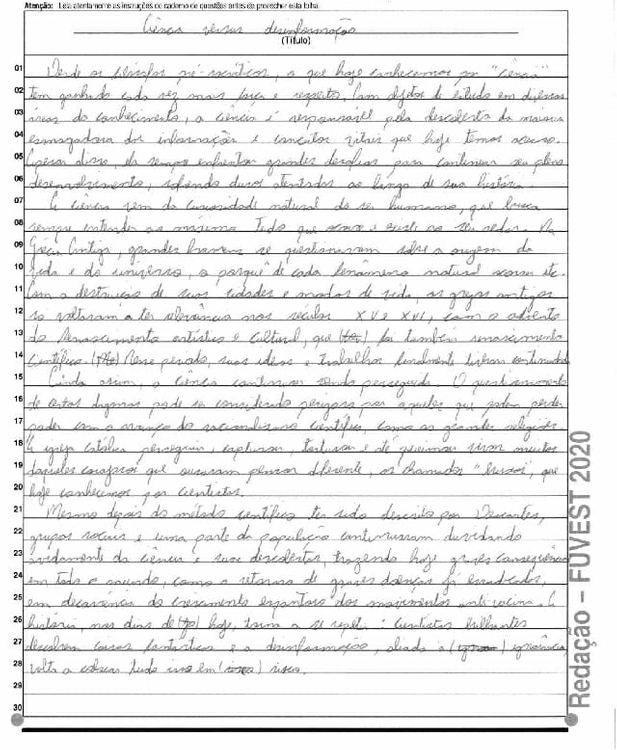 Atenção: Leia atentamente as instruções do caderno de questões antes de preencher esta folha.
Ciência versus desinformação
(Título)
01 Desde os filósofos pré-socráticos, o que hoje conhecemos por "ciência"
02 tem ganhado cada vez mais força e respeito. Com objetos de estudo em diversas
03 áreas do conhecimento, a ciência é responsável pela descoberta da maioria
04 esmagadora das informações e conceitos vitais que hoje temos acesso.
05 Apesar disso, ela sempre enfrentou grandes desafios para continuar seu pleno
06 desenvolvimento, sofrendo duros atentados ao longo de sua história.
07 A ciência vem da curiosidade natural do ser humano, que busca
08 sempre entender ao máximo tudo que ocorre e existe ao seu redor. Na
09 Grécia Antiga, grandes homens se questionaram sobre a origem da
10 vida e do universo, o porquê de cada fenômeno natural ocorrer etc.
11 Com a destruição de suas cidades e modos de vida, os gregos antigos
12 só voltaram a ter relevância nos séculos XV e XVI, com o advento
13 do Renascimento artístico e cultural, que foi também renascimento
14 científico. Nesse período, suas ideias e trabalhos finalmente tiveram continuidade.
15 Ainda assim, a ciência continuou sendo perseguida. O questionamento
16 de certos dogmas pode ser considerado perigoso por aqueles que podem perder
17 poder com o avanço do racionalismo científico, como as grandes religiões.
18 A igreja católica perseguiu, capturou, torturou e até queimou vivos muitos
19 daqueles corajosos que ousaram pensar diferente, os chamados "bruxos", que
20 hoje conhecemos por cientistas.
21 Mesmo depois do método científico ter sido descrito por Descartes,
22 grupos sociais e uma parte da população continuaram duvidando
23 avidamente da ciência e suas descobertas, trazendo hoje graves consequências
24 em todo o mundo, como o retorno de graves doenças já erradicadas,
25 em decorrência do crescimento espantoso dos movimentos anti-vacina. A
26 história, nos dias de hoje, torna a se repetir: cientistas brilhantes
27 descobrem coisas fantásticas e a desinformação, aliada a ignorância
28 volta a colocar tudo isso em risco.
29
30
Redação – FUVEST 2020